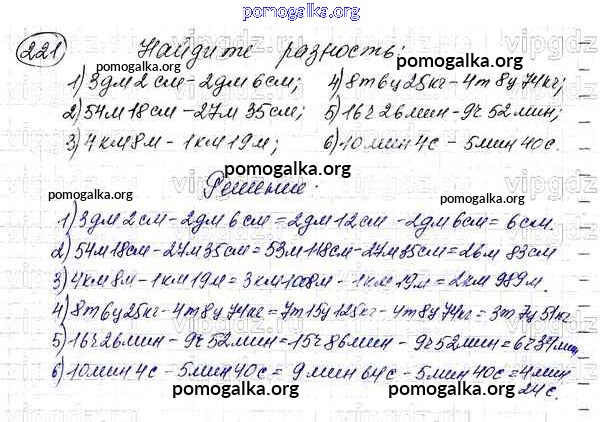 pomogalka.org
221 Найдите разность:
1) 3дм 2см - 2дм 6см; 4) 8т 6ц 25кг - 4т 8ц 74кг;
2) 54м 18см - 27м 35см; 5) 16ч 26мин - 9ч 52мин;
3) 4км 8м - 1км 19м; 6) 10мин 4с - 5мин 40с.
pomogalka.org pomogalka.org
Решение.
pomogalka.org pomogalka.org
1) 3дм 2см - 2дм 6см = 2дм 12см - 2дм 6см = 6см.
2) 54м 18см - 27м 35см = 53м 118см - 27м 35см = 26м 83см
3) 4км 8м - 1км 19м = 3км 1008м - 1км 19м = 2км 989м.
4) 8т 6ц 25кг - 4т 8ц 74кг = 7т 15ц 125кг - 4т 8ц 74кг = 3т 7ц 51кг
5) 16ч 26мин - 9ч 52мин = 15ч 86мин - 9ч 52мин = 6ч 34мин
6) 10мин 4с - 5мин 40с = 9мин 64с - 5мин 40с = 4мин
24с.
pomogalka.org pomogalka.org
pomogalka.org